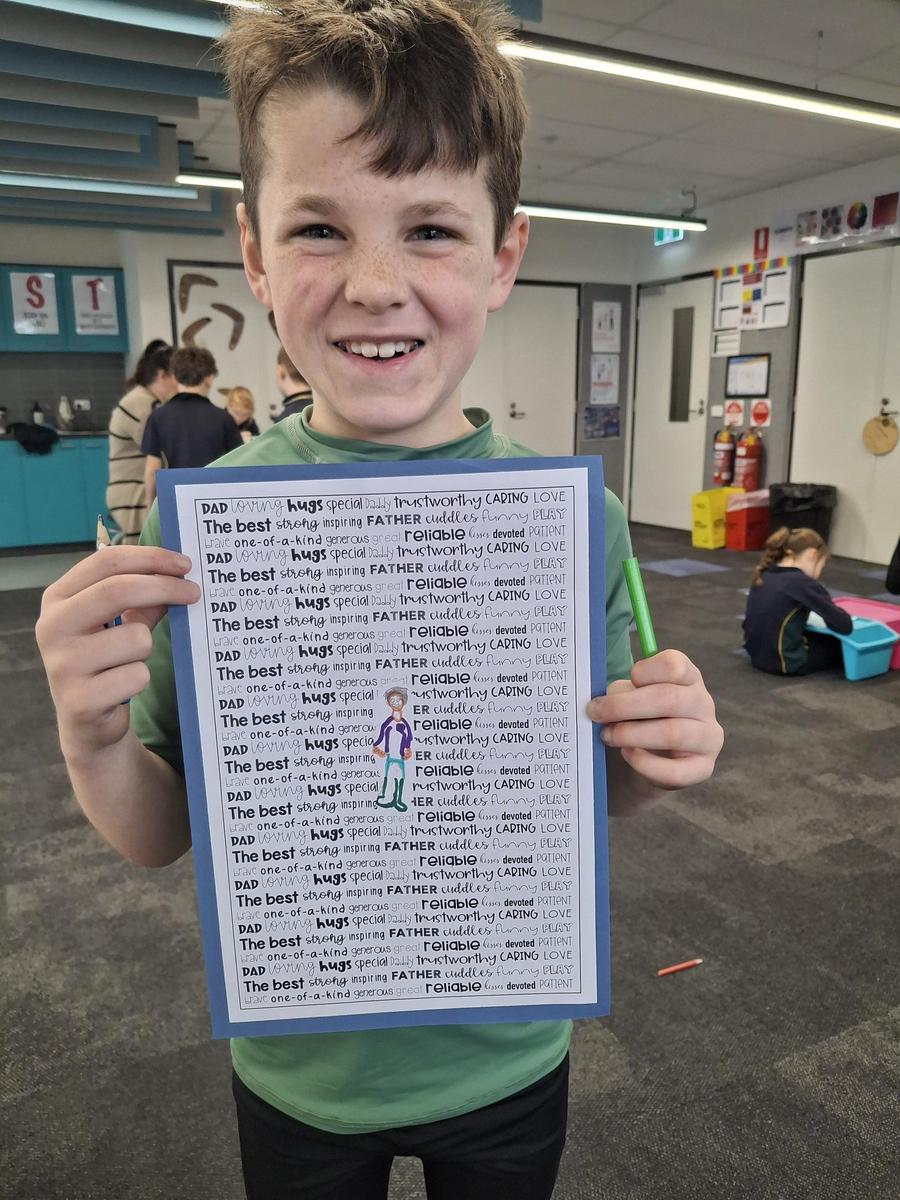 S T
DAD loving hugs special Daddy trustworthy CARING LOVE
The best strong inspiring FATHER cuddles funny PLAY
brave one-of-a-kind generous great reliable kisses devoted PATIENT
DAD loving hugs special Daddy trustworthy CARING LOVE
The best strong inspiring FATHER cuddles funny PLAY
brave one-of-a-kind generous great reliable kisses devoted PATIENT
DAD loving hugs special Daddy trustworthy CARING LOVE
The best strong inspiring FATHER cuddles funny PLAY
brave one-of-a-kind generous great reliable kisses devoted PATIENT
DAD loving hugs special Daddy trustworthy CARING LOVE
The best strong inspiring FATHER cuddles funny PLAY
brave one-of-a-kind generous great reliable kisses devoted PATIENT
DAD loving hugs special ustworthy CARING LOVE
The best strong inspiring ER cuddles funny PLAY
brave one-of-a-kind generou reliable kisses devoted PATIENT
DAD loving hugs specia ustworthy CARING LOVE
The best strong inspiring ER cuddles funny PLAY
brave one-of-a-kind generous reliable kisses devoted PATIENT
DAD loving hugs special ustworthy CARING LOVE
The best strong inspiring HER cuddles funny PLAY
brave one-of-a-kind generous great reliable kisses devoted PATIENT
DAD loving hugs special Daddy trustworthy CARING LOVE
The best strong inspiring FATHER cuddles funny PLAY
brave one-of-a-kind generous great reliable kisses devoted PATIENT
DAD loving hugs special Daddy trustworthy CARING LOVE
The best strong inspiring FATHER cuddles funny PLAY
brave one-of-a-kind generous great reliable kisses devoted PATIENT
DAD loving hugs special Daddy trustworthy CARING LOVE
The best strong inspiring FATHER cuddles funny PLAY
brave one-of-a-kind generous great reliable kisses devoted PATIENT
DAD loving hugs special Daddy trustworthy CARING LOVE
The best strong inspiring FATHER cuddles funny PLAY
brave one-of-a-kind generous great reliable kisses devoted PATIENT